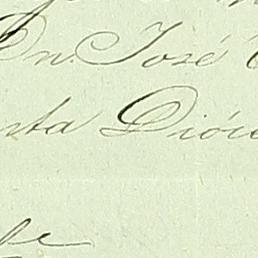 Dn. José
nta Dióce
fe